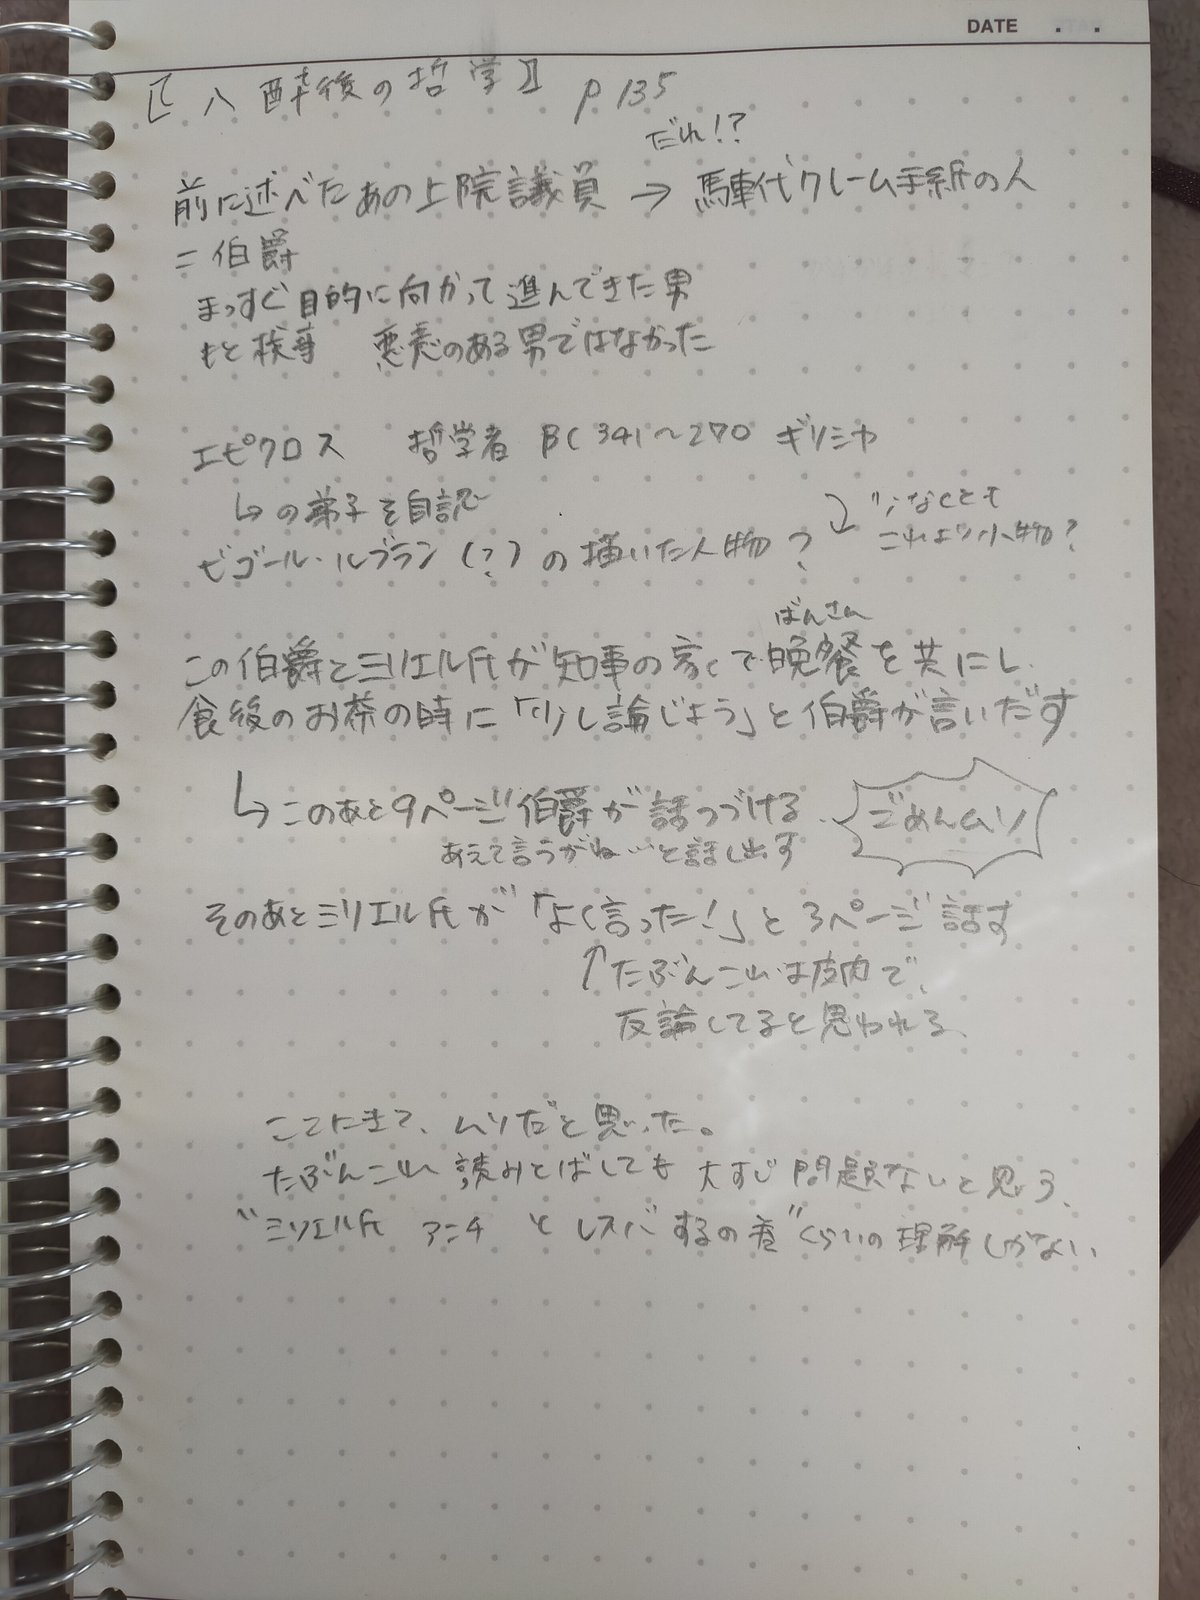 DATE . .
【八 酔後の哲学】 P135
だれ!?
前に述べたあの上院議員 → 馬車代クレーム手紙の人
=伯爵
まっすぐ目的に向かって進んできた男
もと検事 悪意のある男ではなかった
エピクロス 哲学者 BC 341〜270 ギリシャ
↳の弟子を自認
ピゴール・ルブラン(?)の描いた人物?
⤵ 少なくとも
これより小物?
ばんさん
この伯爵とミリエル氏が知事の家で晩餐を共にし、
食後のお茶の時に「少し論じよう」と伯爵が言いだす
↳このあと9ページ伯爵が話つづける
ごめんムリ
あえて言うがね…と話し出す
そのあとミリエル氏が「よく言った!」と3ページ話す
↑たぶんこれは皮肉で、
反論してると思われる、
ここにきて、ムリだと思った。
たぶんこれ読みとばしても大すじ問題ないと思う、
"ミリエル氏 アンチ とレスバするの巻"くらいの理解しかない